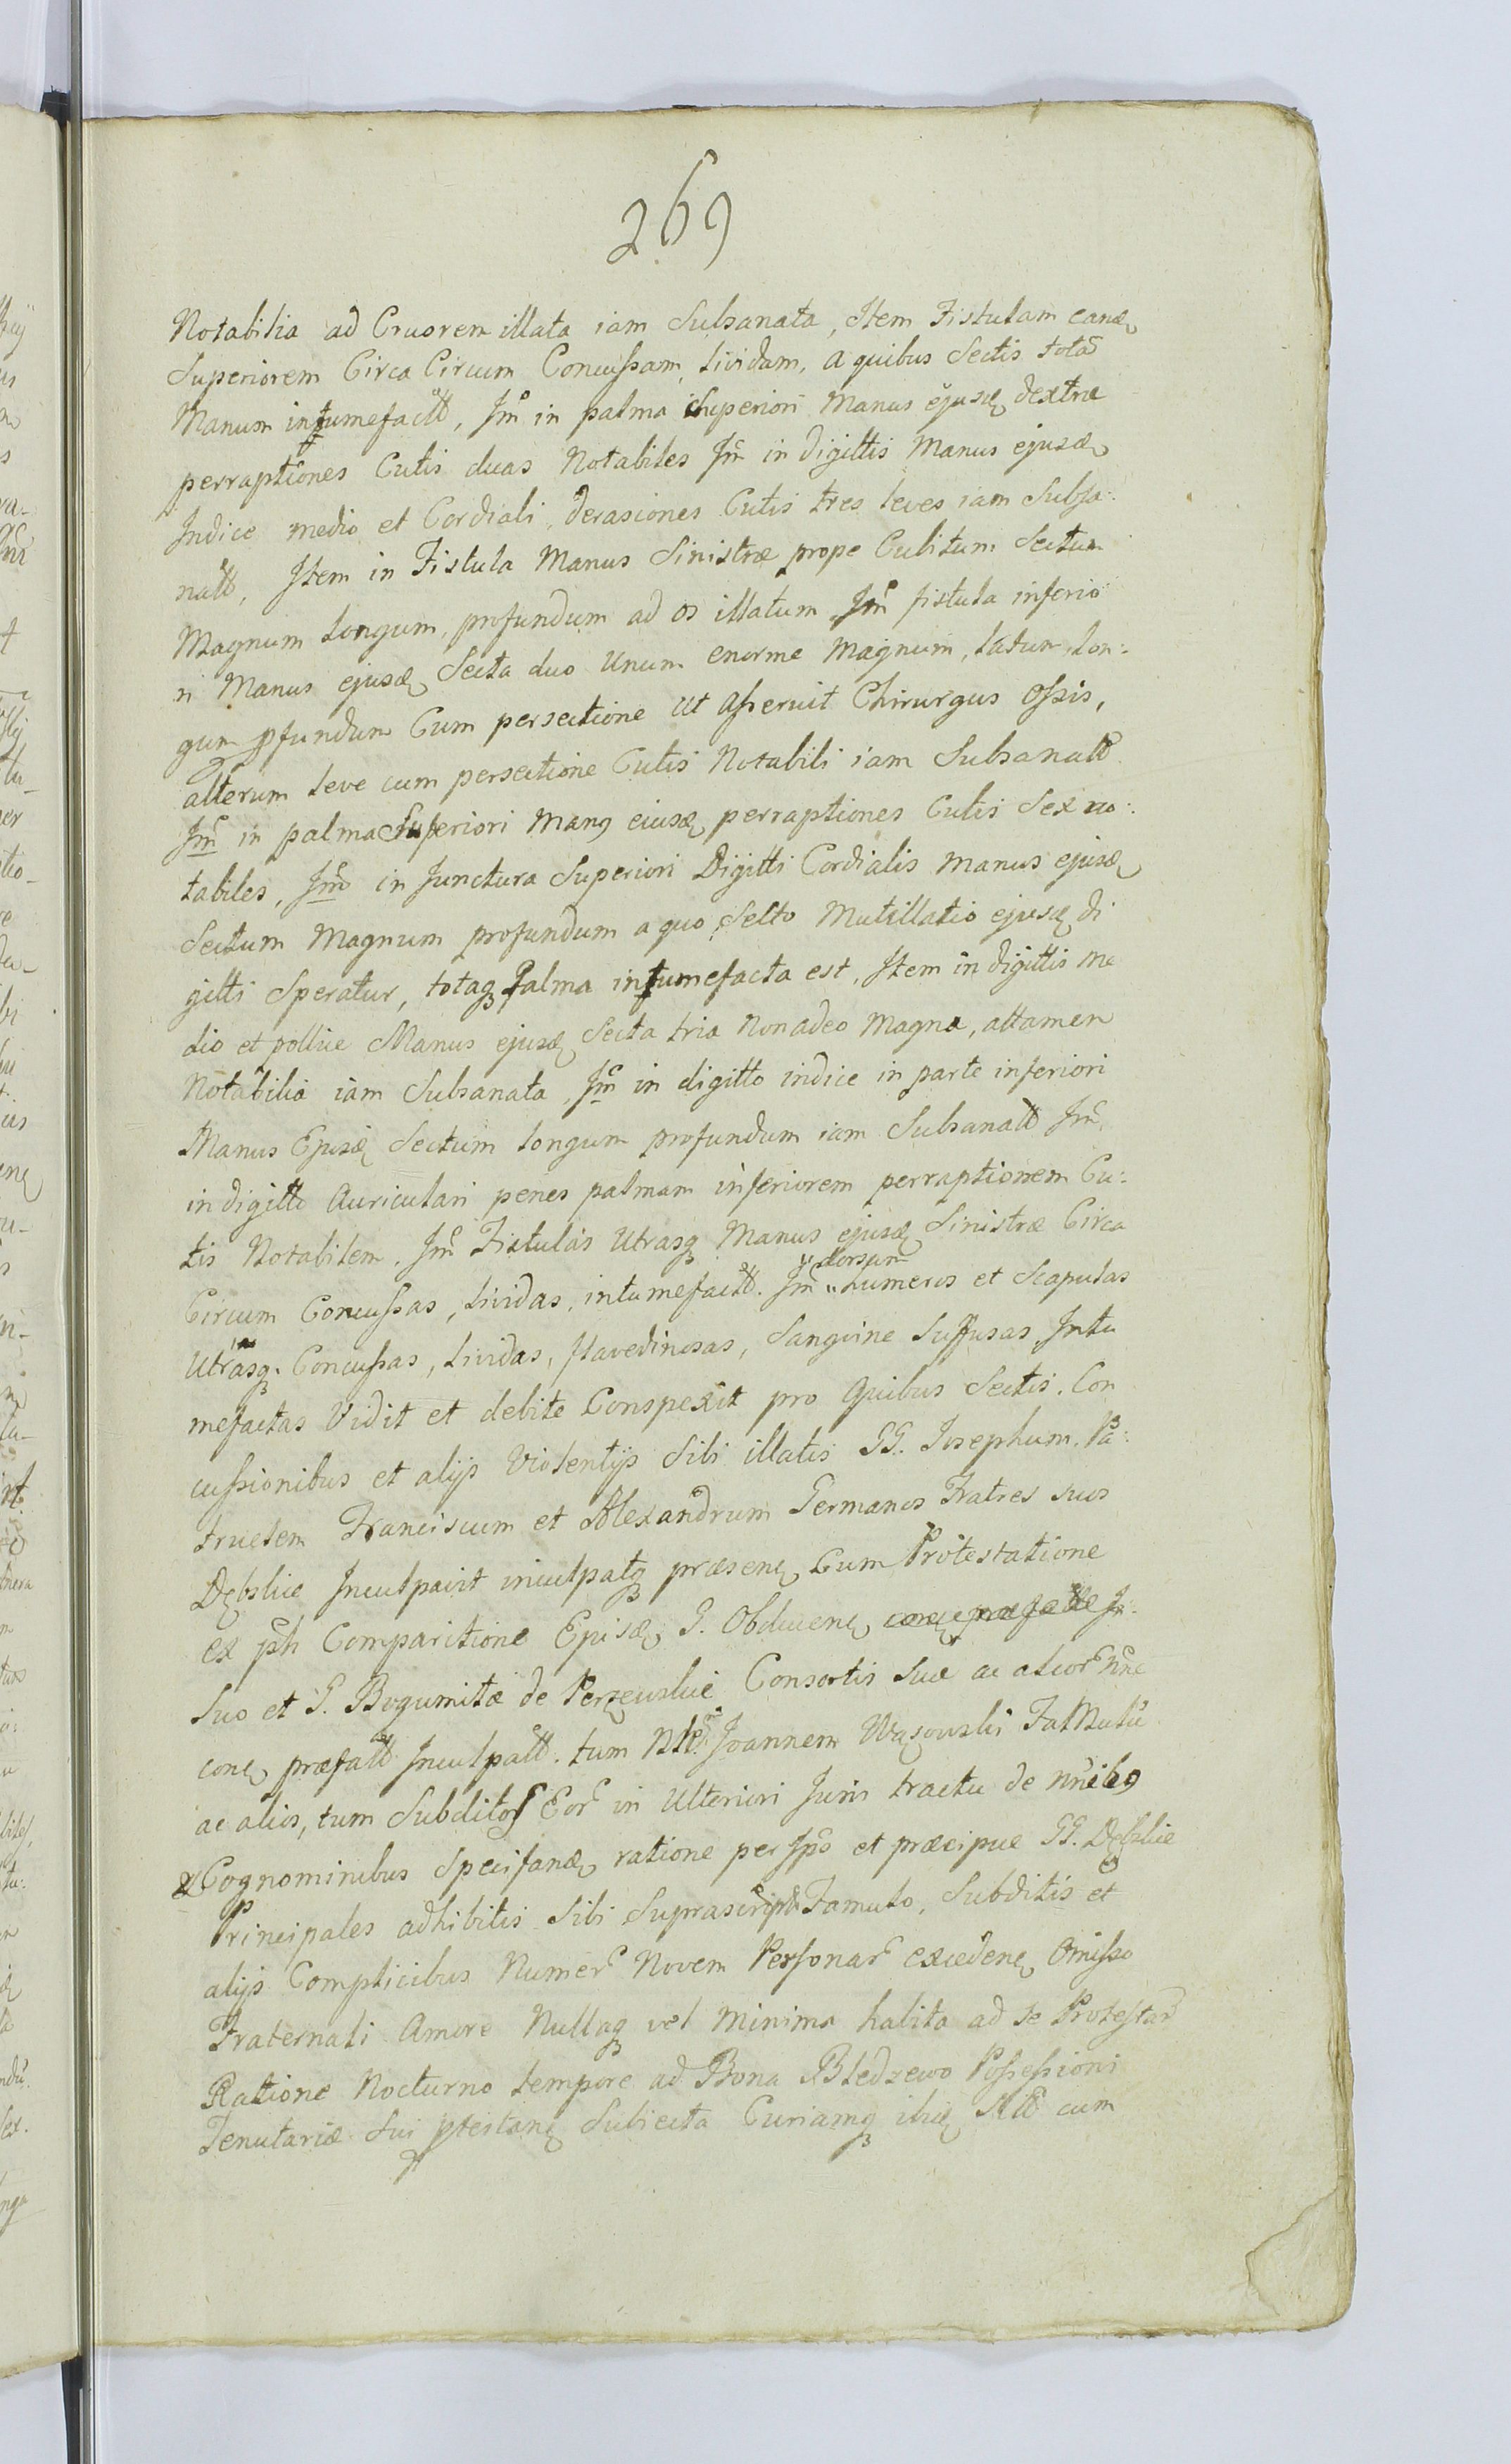 269
Notabilia ad Cruorem illata iam Subsanata, Item Fistulam eand
Superiorem Circa Circum Concussam, lividam, a quibus Sectis totã
Manum intumefactã, Itm in palma Superiori Manus ejusd dextræ
perraptiones Cutis duas Notabiles Itm in digittis Manus ejusd
Indice medio et Cordiali, derasiones Cutis tres leves iam Subsa:
natt, Item in Fistula Manus Sinistræ prope Cubitum Sectum
Magnum longum, profundum ad os illatum Itm fistula inferio
ri Manus ejusd Secta duo Unum enorme Magnum, latum, lon:
gum pfundum Cum persectione Ut asseruit Chirurgus Ossis,
alterum leve cum persectione Cutis Notabili iam Subsanatt
Itm in palma Superiori Mang eiusd perraptiones Cutis Sex no:
tabiles, Itm in Junctura Superiori Digitti Cordialis manus ejusd
Sectum Magnum profundum a quo Secto Mutillatio ejusd di
gitti Speratur, totaq Palma intumefacta est, Item in digittis me
dio et pollice Manus ejusd Secta tria Non adeo Magna, attamen
Notabilia iam Subsanata, Itm in digitto indice in parte inferiori
Manus Ejusd Sectum longum profundum iam Subsanatt Itm
in digitto Auriculari penes palmam inferiorem perraptionem Cu:
tis Notabilem. Itm Fistulas Utrasq Manus ejusd Sinistræ Circa
Circum Concussas, lividas, intumefactt. Itm " dorsum humeros et Scapulas
Utrasq. Concussas, lividas, flavedinosas, Sanguine Suffusas Intu
mefactas Vidit et debite Conspexit pro Quibus Sectis. Con
cussionibus et alijs Violentijs Sibi illatis GG. Josephum. Pa:
truelem Franciscum et Alexandrum Germanos Fratres suos
Dębskie Inculpavit inculpatq præsen Cum Protestatione
ex pth Comparitione Ejusd G. Obducen
Suo et G. Bogumiłæ de Consortis Suæ ac alior nne
conc præfatt Inculpatt. tum Joannem Wąsowski Famulũ
ac alios, tum Subditos Eor in Ulteriori Juris tractu de nnibg
& Cognominibus Specifand ratione per Ipso et præcipue GG. Dębskie
Principales adhibitis Sibi Suprascript Famulo, Subditis et
alijs Complicibus Numer Novem Personar exceden Omisso
Fraternali Amore Nullaq vel Minima habita ad se Protestan
Ratione Nocturno tempore ad Bona Bledzewo Possessioni
Tenutariæ Sui ptestan Subiecta Curiamq ibid Sitt cum